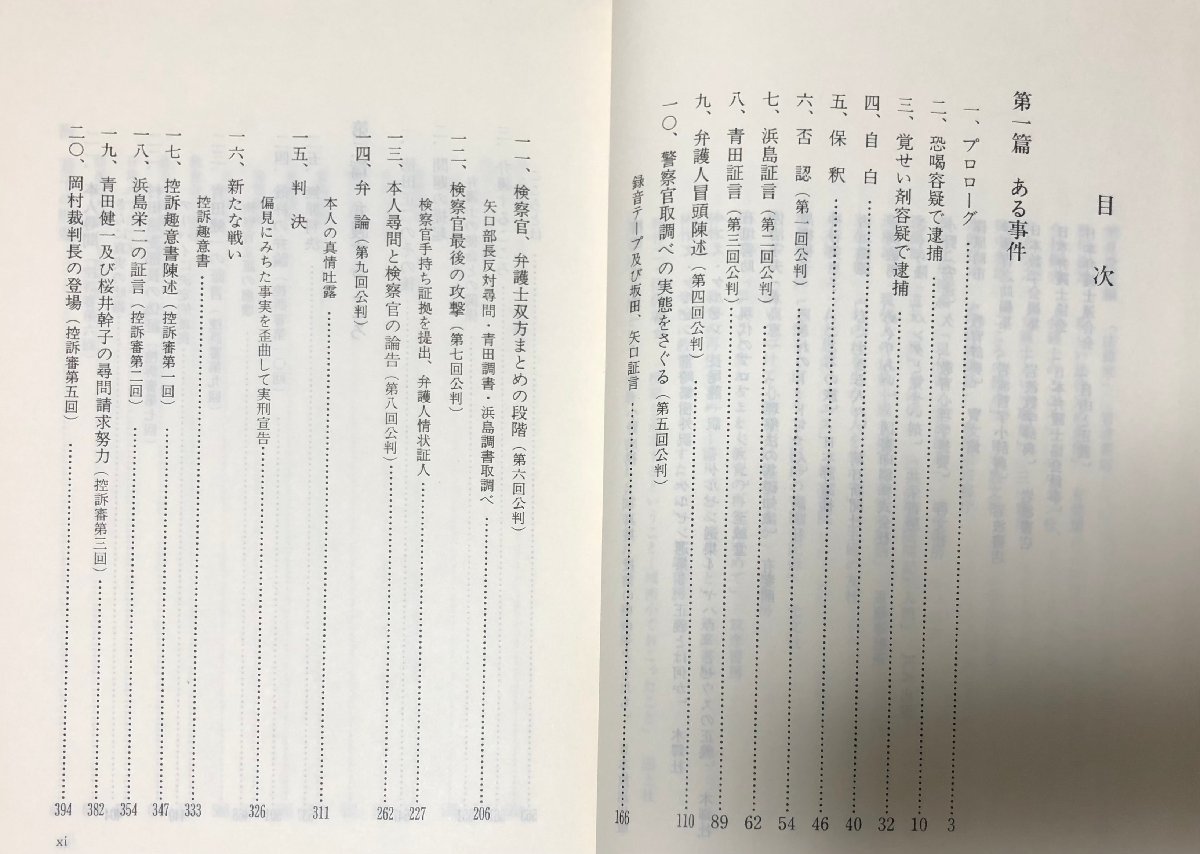 目次
第一篇 ある事件
一、プロローグ……3
二、恐喝容疑で逮捕……10
三、覚せい剤容疑で逮捕……32
四、自白……40
五、保釈……46
六、否認（第一回公判）……54
七、浜島証言（第二回公判）……62
八、青田証言（第三回公判）……89
九、弁護人冒頭陳述（第四回公判）……110
一〇、警察官取調べの実態をさぐる（第五回公判）
録音テープ及び坂田、矢口証言……166
一一、検察官、弁護士双方まとめの段階（第六回公判）
矢口部長反対尋問・青田調書・浜島調書取調べ……206
一二、検察官最後の攻撃（第七回公判）
検察官手持ち証拠を提出、弁護人情状証人……227
一三、本人尋問と検察官の論告（第八回公判）……262
一四、弁論（第九回公判）
本人の真情吐露……311
一五、判決
偏見にみちた事実を歪曲して実刑宣告……326
一六、新たな戦い
控訴趣意書……333
一七、控訴趣意書陳述（控訴審第一回）……347
一八、浜島栄二の証言（控訴審第二回）……354
一九、青田健一及び桜井幹子の尋問請求努力（控訴審第三回）……382
二〇、岡村裁判長の登場（控訴審第五回）……394
xi